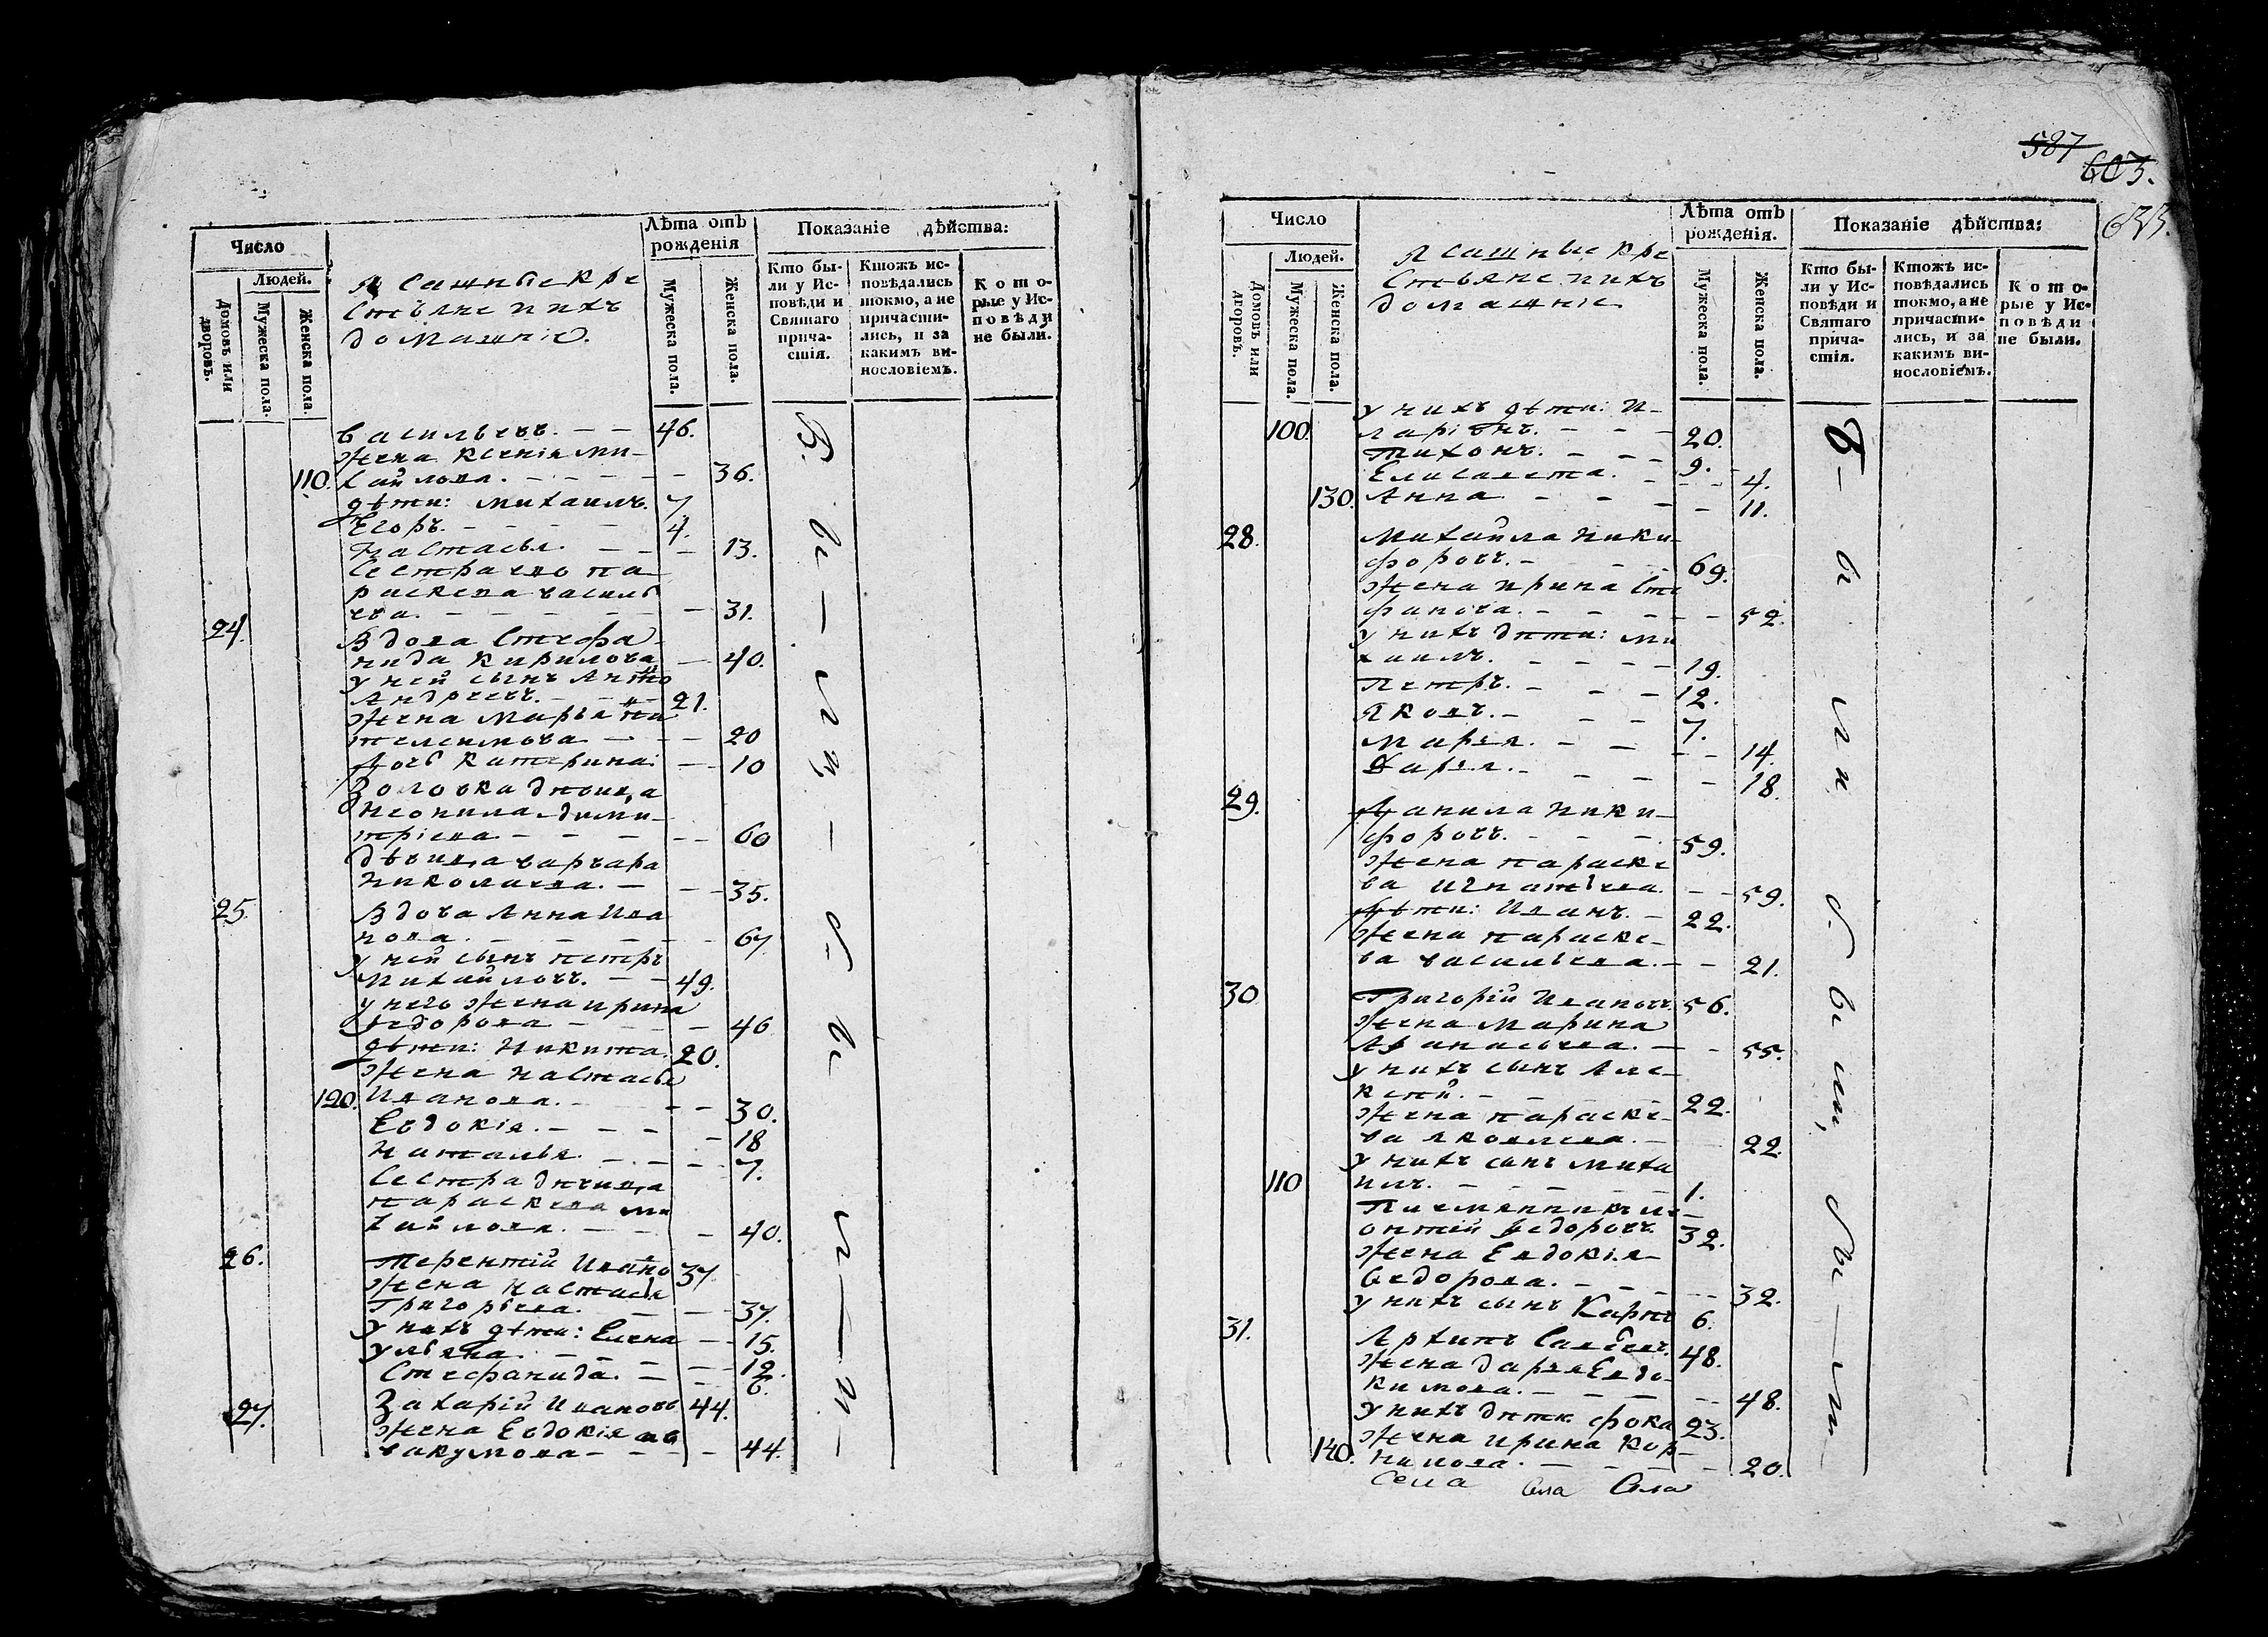 Число
Людей.
Домовъ или дворовъ.
Мужеска пола.
Женска пола.
Ясашные кре
стьяне и ихъ
домашніе.
Лѣта отъ
рожденія
Мужеска пола.
Женска пола.
Показаніе дѣйства:
Кто бы-
ли у Ис-
повѣди и
Святаго
прича-
стія.
Ктожъ ис-
повѣдались
токмо, а не
причасти-
лись, и за
какимъ ви-
нословіемъ.
Кото-
рые у Ис-
повѣди
не были.
васильевъ. — — 46.
жена Ксенія ми-
110. хайлова. — — — — 36.
дѣти: михаилъ. 7
Егоръ. — — — 4.
Настасья. — — — 13.
сестра ево па-
раскева василь
ева. — — — — 31.
24. Вдова Стефа-
нида Кирилова — 40.
у ней сынъ Анто
Андреевъ. — — 21.
жена марья пан
телеимова — — — 20
дочь Катерина: — 10
Золовка дѣвица
неонила дими-
тріева. — — — — 60
дѣвица варвара
Николаева. — — — 35.
25. Вдова Анна Ива
нова. — — — — 67
у ней сынъ петръ
михайловъ. — — 49.
у него жена ирина
федорова — — — 46
дѣти: Никита. 20.
жена настасья
120. Иванова. — — — 30.
Евдокія. — — — — 18
Наталья. — — — 7.
Сестра дѣвица
параскева ми
хайлова. — — — 40.
26. Терентій Ивано 37
жена настасья
Григорьева. — — — 37.
у нихъ дѣти: Елена — — 15.
ульяна. — — — — 12.
Стефанида. — — — 6.
27. Захарій Ивановъ 44.
жена Евдокія ав
вакумова — — — — 44.
В. ы — л и — б ы — л — и —
587
603.
633.
Число
Людей.
Домовъ или дворовъ.
Мужеска пола.
Женска пола.
Ясашные кре
стьяне и ихъ
домашніе
Лѣта отъ
рожденія.
Мужеска пола.
Женска пола.
Показаніе дѣйства:
Кто бы-
ли у Ис-
повѣди и
Святаго
прича-
стія.
Ктожъ ис-
повѣдались
токмо, а не
причасти-
лись, и за
какимъ ви-
нословіемъ.
Кото-
рые у Ис-
повѣди
не были.
у нихъ дѣти: И-
100. ларіонъ. — — — 20.
Тихонъ. — — — 9.
Елисавета. — — — 4.
130. Анна — — — — 11.
28. Михайла Ники-
форовъ. — — — 69.
жена ирина Сте
фанова. — — — — 52.
у нихъ дѣти: ми
хаилъ. — — — — 19.
Петръ. — — — 12.
Яковъ. — — — 7.
Марья. — — — — 14.
Дарья. — — — — 18.
29. Данила Ники-
форовъ. — — — 59.
жена параске
ва игнатьева. — — 59.
Дѣти: Иванъ. — 22.
жена параске-
ва васильева. — — 21.
30 Григорій Ивановъ. 56.
жена марина
Афанасьева. — — 55.
у нихъ сынъ Але-
ксѣй. — — — — 22.
жена параске-
ва яковлева. — 22.
у нихъ сынъ миха
110 илъ. — — — — 1.
Племянникъ ле-
онтій федоровъ. 32.
жена Евдокія
федорова. — — — — 32.
у нихъ сынъ Карпъ 6.
31. Архипъ Савельев. 48.
жена дарья Евдо-
кимова. — — — — 48.
у нихъ дѣти: фока 23.
жена ирина Кор-
140. нилова. — — — — 20.
Села Села Села
Б — ы л и б ы ли, бы — ли —